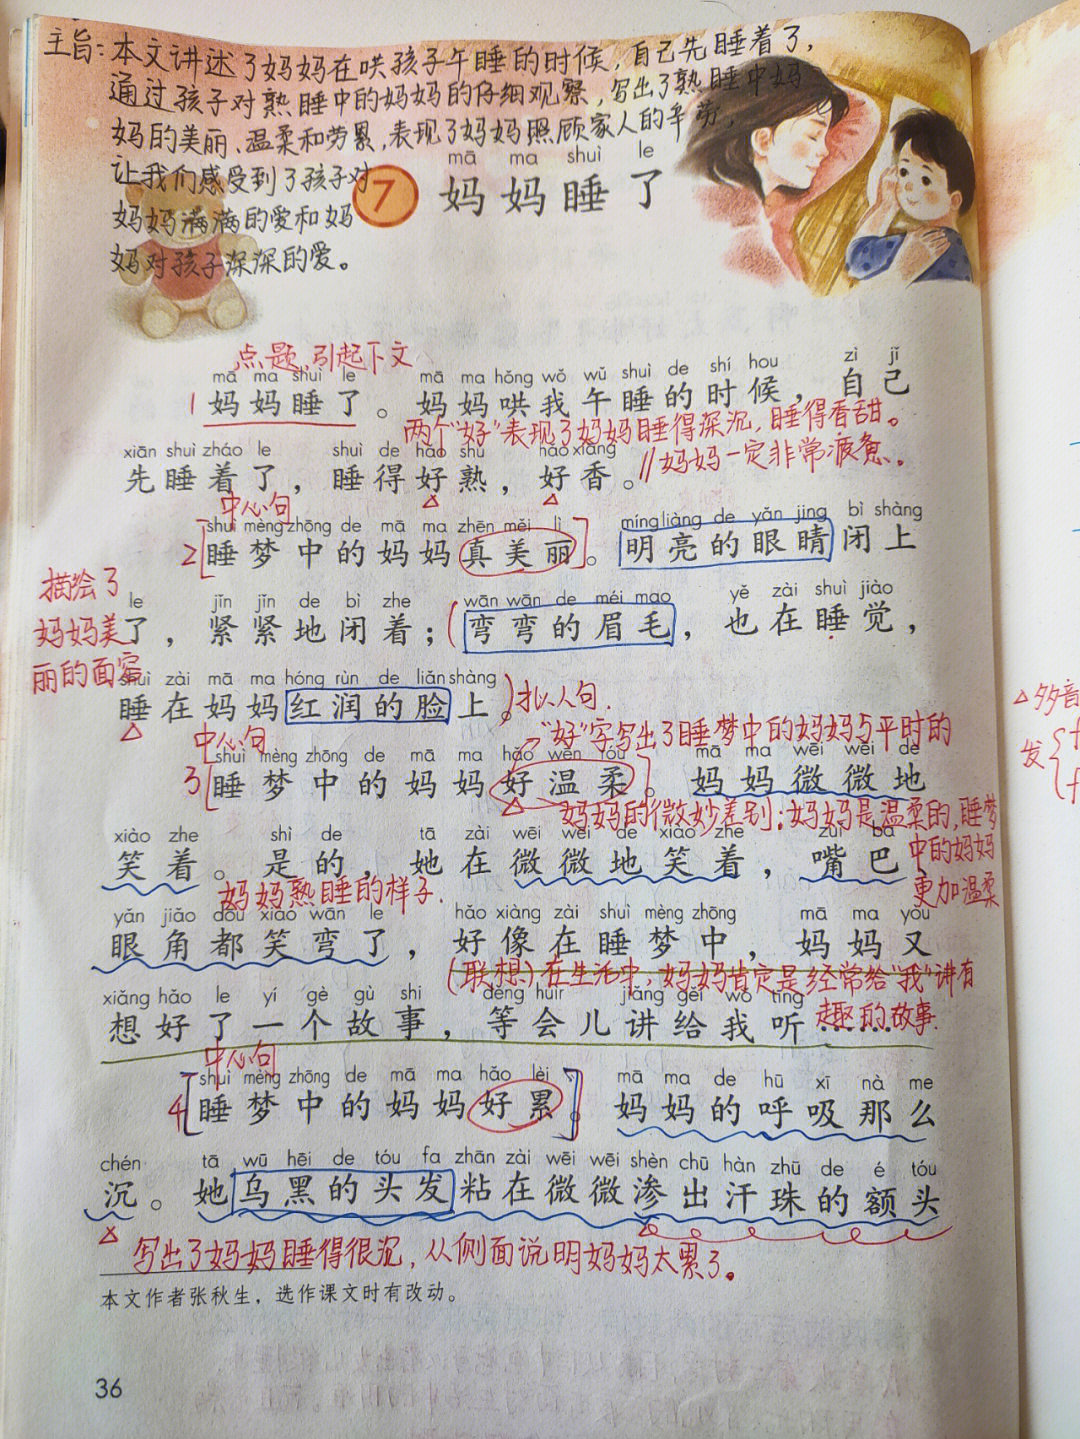 主旨:本文讲述了妈妈在哄孩子午睡的时候,自己先睡着了,
通过孩子对熟睡中的妈妈的仔细观察,写出了熟睡中妈
妈的美丽、温柔和劳累,表现了妈妈照顾家人的辛劳,
让我们感受到了孩子对
妈妈满满的爱和妈
妈对孩子深深的爱。
mā ma shuì le
7 妈妈睡了
点题,引起下文
mā ma shuì le mā ma hǒng wǒ wǔ shuì de shí hou zì jǐ
1 妈妈睡了。妈妈哄我午睡的时候,自己
两个“好”表现了妈妈睡得深沉,睡得香甜。
xiān shuì zháo le shuì de hǎo shú hǎo xiāng
先睡着了,睡得好熟,好香。
//妈妈一定非常疲惫.
中心句
shuì mèng zhōng de mā ma zhēn měi lì míng liàng de yǎn jing bì shàng
2 [睡梦中的妈妈真美丽]。明亮的眼睛闭上
描绘了
妈妈美
丽的面容
le jǐn jǐn de bì zhe wān wān de méi mao yě zài shuì jiào
了,紧紧地闭着;(弯弯的眉毛,也在睡觉,
shuì zài mā ma hóng rùn de liǎn shàng
睡在妈妈红润的脸上。)拟人句.
中心句
“好”字写出了睡梦中的妈妈与平时的
shuì mèng zhōng de mā ma hǎo wēn róu mā ma wēi wēi de
3 [睡梦中的妈妈好温柔]。妈妈微微地
妈妈的微妙差别;妈妈是温柔的,睡梦
中的妈妈
更加温柔
xiào zhe shì de tā zài wēi wēi de xiào zhe zuǐ ba
笑着。是的,她在微微地笑着,嘴巴、
妈妈熟睡的样子.
yǎn jiǎo dōu xiào wān le hǎo xiàng zài shuì mèng zhōng mā ma yòu
眼角都笑弯了,好像在睡梦中,妈妈又
(联想)在生活中,妈妈肯定是经常给“我”讲有
趣的故事.
xiǎng hǎo le yí gè gù shi děng huìr jiǎng gěi wǒ tīng
想好了一个故事,等会儿讲给我听……
中心句
shuì mèng zhōng de mā ma hǎo lèi mā ma de hū xī nà me
4 [睡梦中的妈妈好累]。妈妈的呼吸那么
chén tā wū hēi de tóu fa zhān zài wēi wēi shèn chū hàn zhū de é tóu
沉。她乌黑的头发粘在微微渗出汗珠的额头
写出了妈妈睡得很沉,从侧面说明妈妈太累了。
本文作者张秋生,选作课文时有改动。
36
多音
发